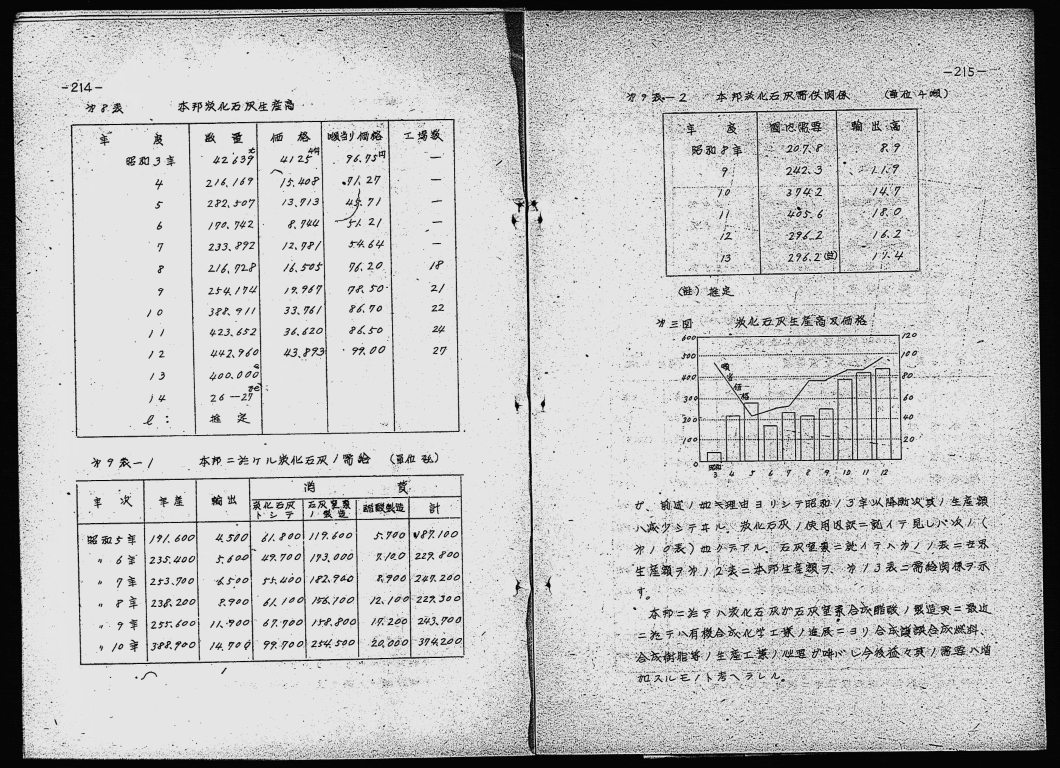 -214-
第8表 本邦炭化石灰生産高
年度 数量 価格 噸当り価格 工場数
昭和3年 42,639 4125 96.75円 —
4 216,169 15,408 71.27 —
5 282,507 13,713 45.71 —
6 170,742 8,744 51.21 —
7 233,892 12,781 54.64 —
8 216,728 16,505 76.20 18
9 254,174 19,967 78.50 21
10 388,911 33,761 86.70 22
11 423,652 36,620 86.50 24
12 442,960 43,893 99.00 27
13 400,000
14 26—27
l: 推定
第9表-1 本邦ニ於ケル炭化石灰ノ需給
年次 年産 輸出 消費
炭化石灰トシテ 石灰窒素ノ製造 醋酸製造 計
昭和5年 191,600 4,500 61,800 119,600 5,700 187,100
〃6年 235,400 5,600 49,700 173,000 7,100 229,800
〃7年 253,700 6,500 55,400 182,900 8,900 247,200
〃8年 238,200 8,900 61,100 156,100 12,100 229,300
〃9年 255,600 11,900 67,700 158,800 17,200 243,700
〃10年 388,900 14,700 99,700 254,500 20,000 374,200
-215-
第9表-2 本邦炭化石灰需供関係 (単位千噸)
年度 国内需要 輸出高
昭和8年 207.8 8.9
9 242.3 11.9
10 374.2 14.7
11 405.6 18.0
12 296.2 16.2
13 296.2(註) 17.4
(註) 推定
第三図 炭化石灰生産高及価格
600 500 400 300 200 100 0
120 100 80 60 40 20
噸当価格
昭和3 4 5 6 7 8 9 10 11 12
ガ、前述ノ如キ理由ヨリシテ昭和13年以降漸次其ノ生産額
ハ減少シテヰル。炭化石灰ノ使用内訳ニ就イテ見レバ次ノ(
第10表)如クデアル。石灰窒素ニ就イテハ第11表ニ世界
生産額ヲ第12表ニ本邦生産額ヲ、第13表ニ需給関係ヲ示
す。
本邦ニ於テハ炭化石灰ガ石灰窒素合成醋酸ノ製造
ニ於テハ有機合成化学工業ノ進展ニヨリ合成 合成燃料、
合成樹脂等ノ生産工業ノ 今後益々其ノ需要ハ増
加スルモノト考ヘラレル。